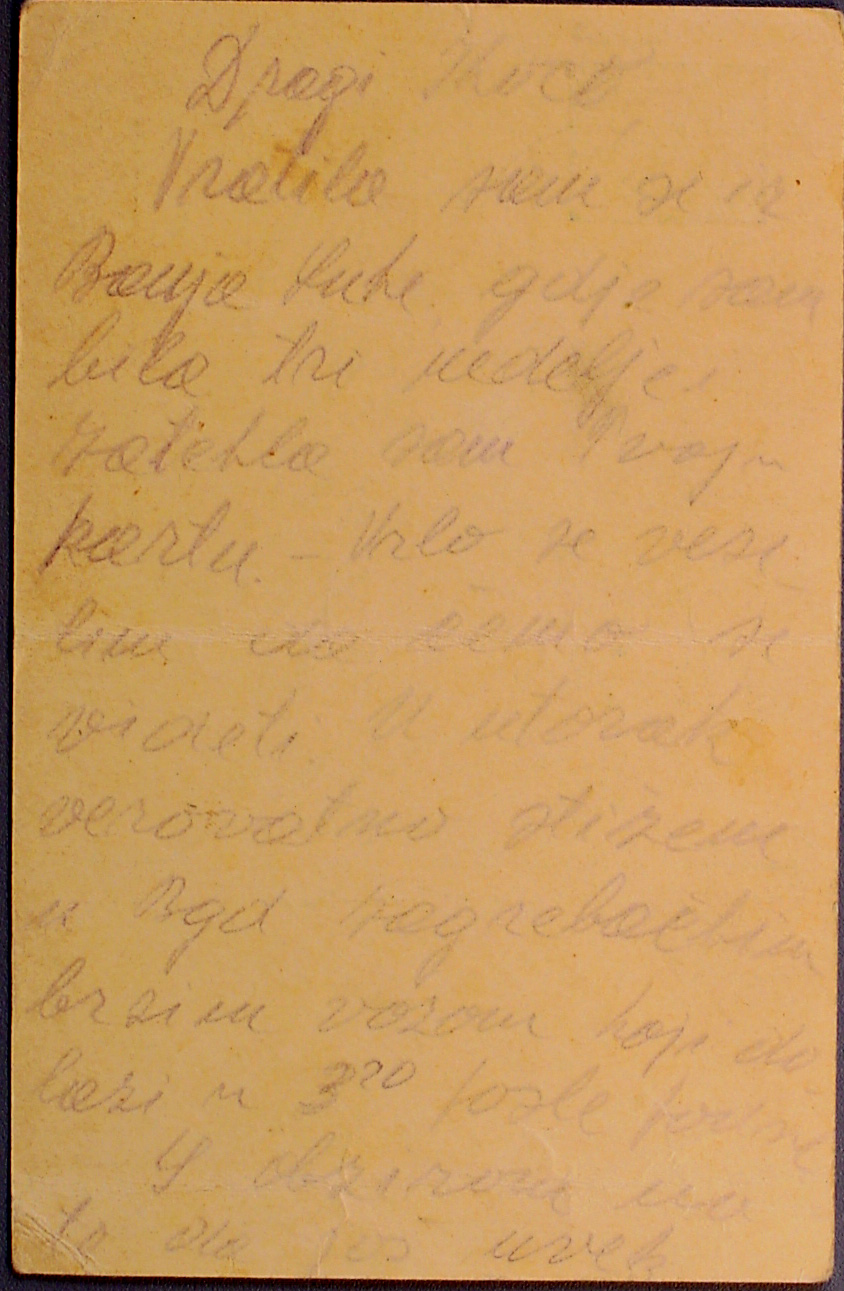 Dragi Kočo,
Vratila sam se iz
Banja Luke gdje sam
bila tri nedelje.
Zatekla sam Tvoju
kartu. – Vrlo se vese
lim da ćemo se
videti. U utorak
verovatno stižem
u Bgd zagrebačkim
brzim vozom koji do
lazi u 3²⁰ posle podne
S obzirom na
to da još uvek